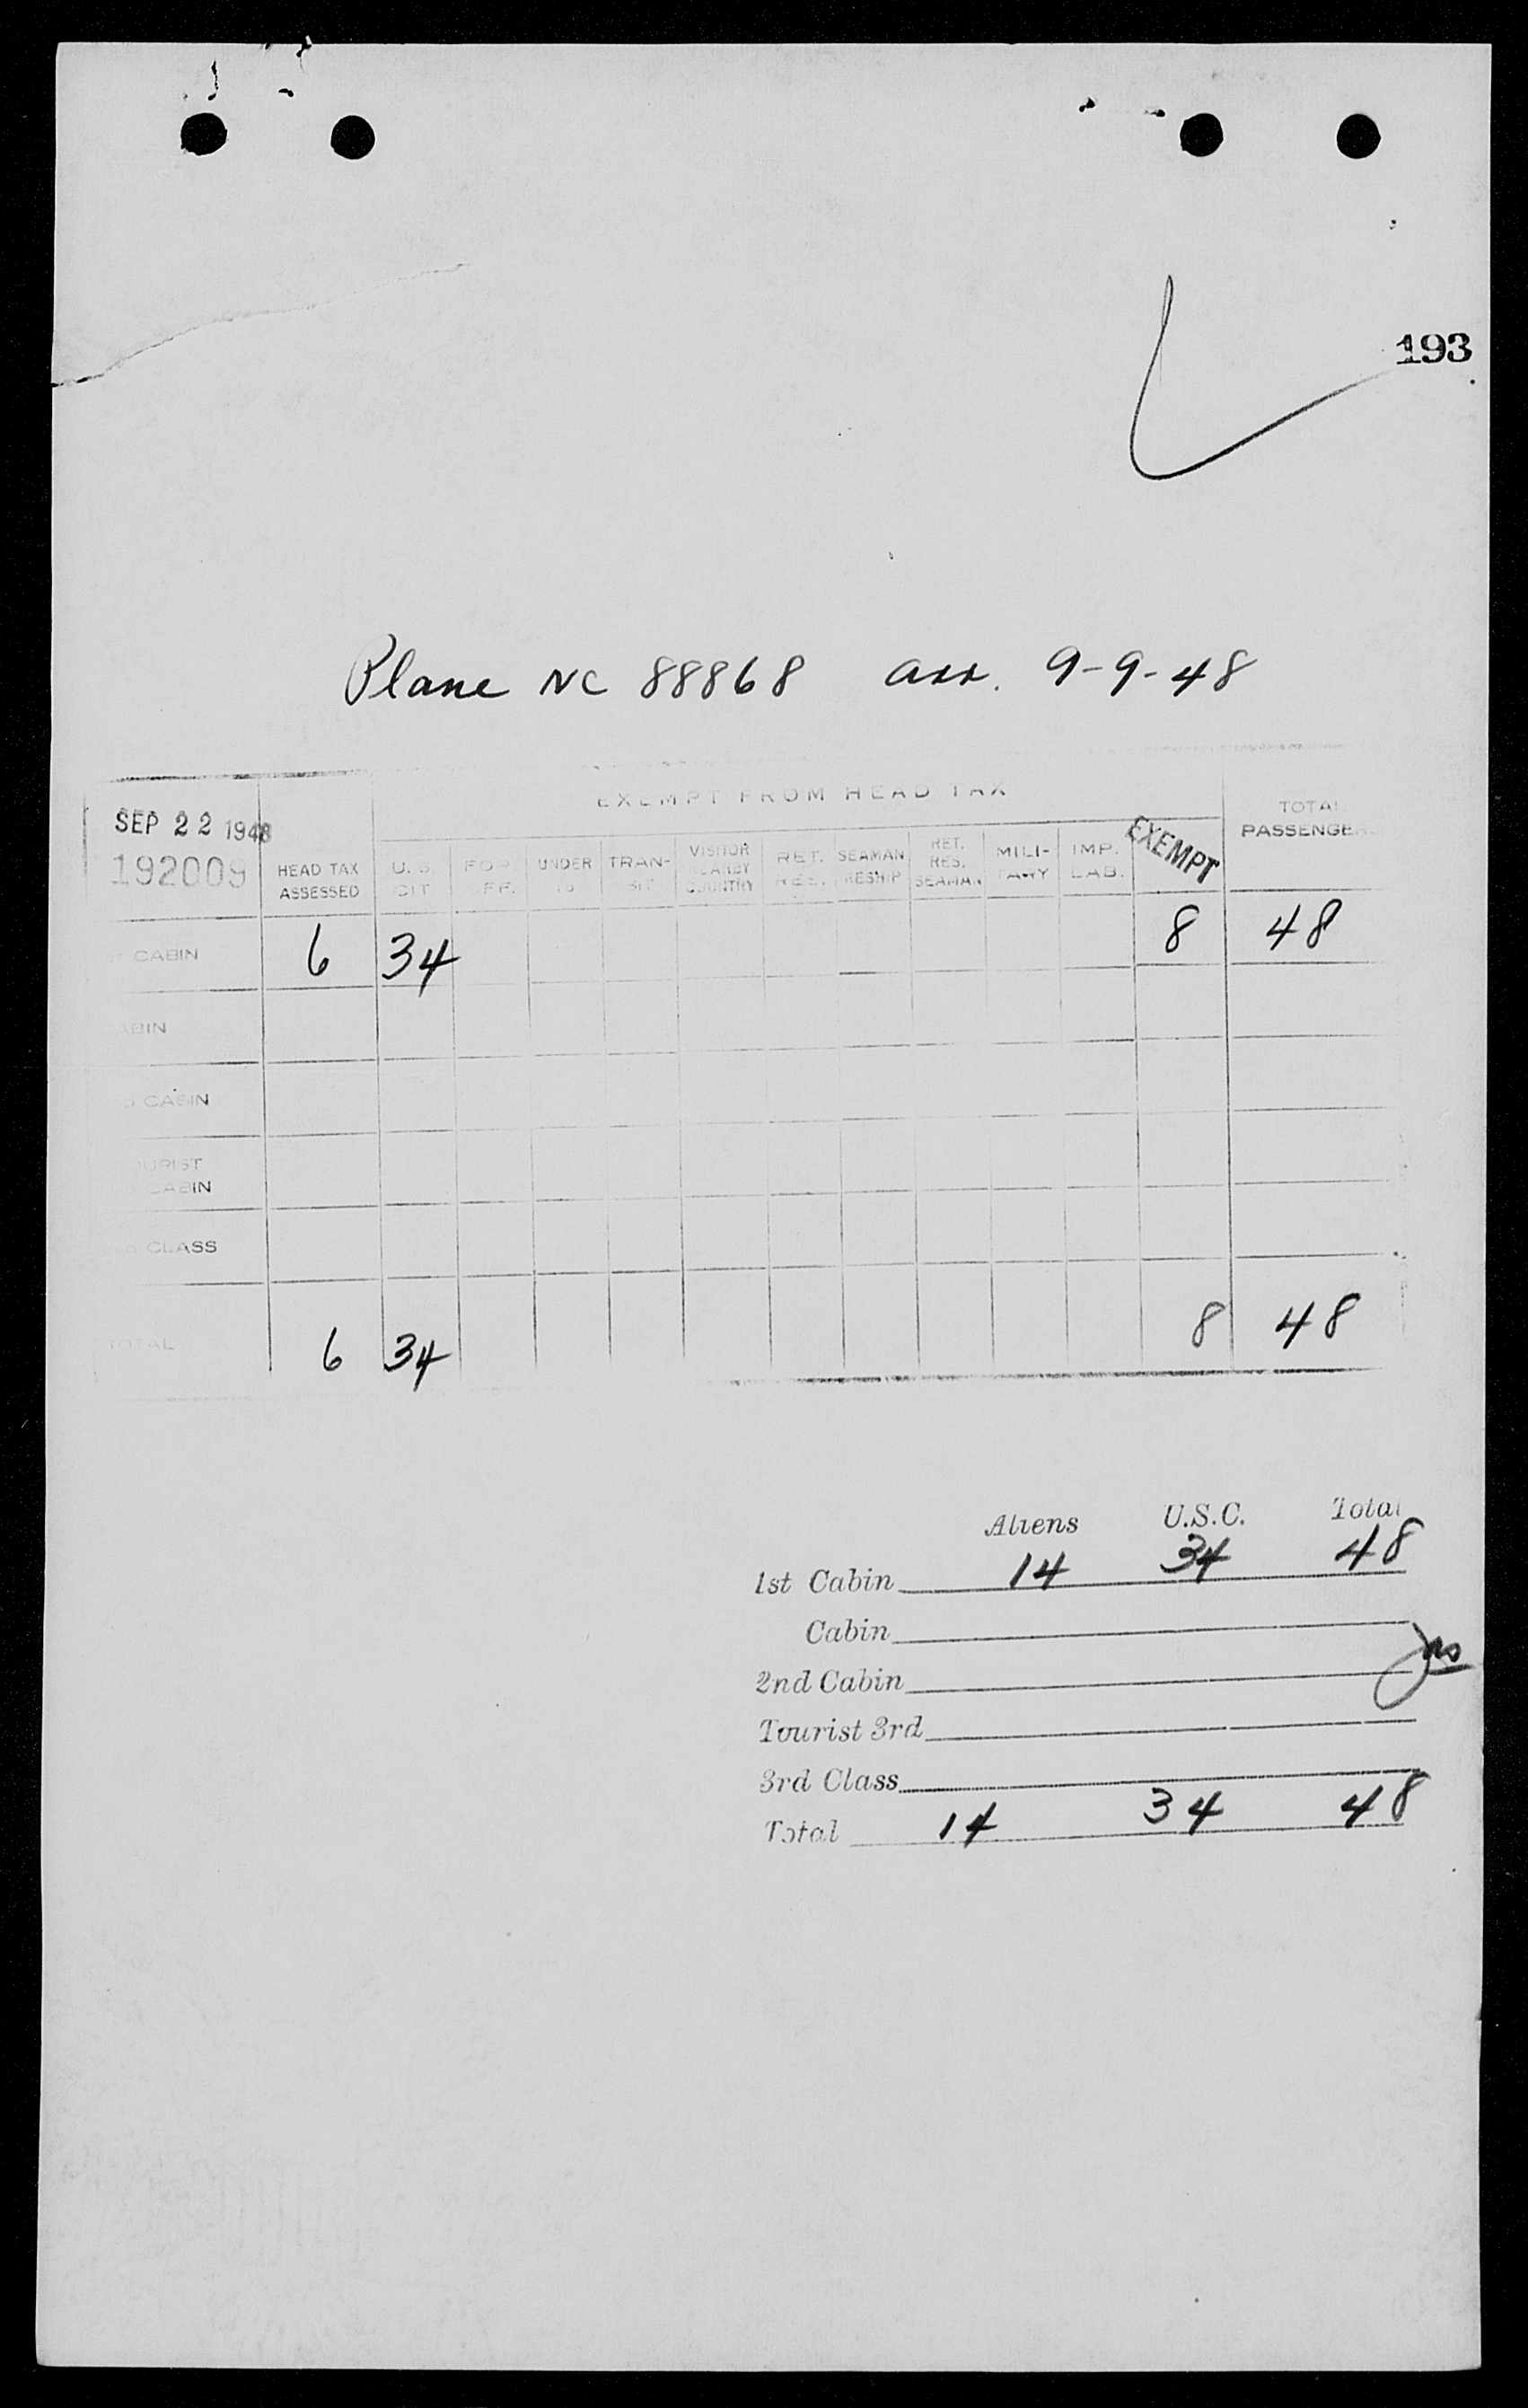 193
Plane NC 88868 arr. 9-9-48
EXEMPT FROM HEAD TAX
SEP 22 1948
192009
HEAD TAX ASSESSED
U. S. CIT
FOR
UNDER
TRAN-SIT
VISITOR COUNTRY
RET. RES.
SEAMAN
RET. RES. SEAMAN
MILI-TARY
IMP. LAB.
EXEMPT
TOTAL PASSENGERS
CABIN 6 34 8 48
CABIN
CABIN
TOURIST CABIN
CLASS
TOTAL 6 34 8 48
Aliens U.S.C. Total
1st Cabin 14 34 48
Cabin
2nd Cabin
Tourist 3rd
3rd Class
Total 14 34 48